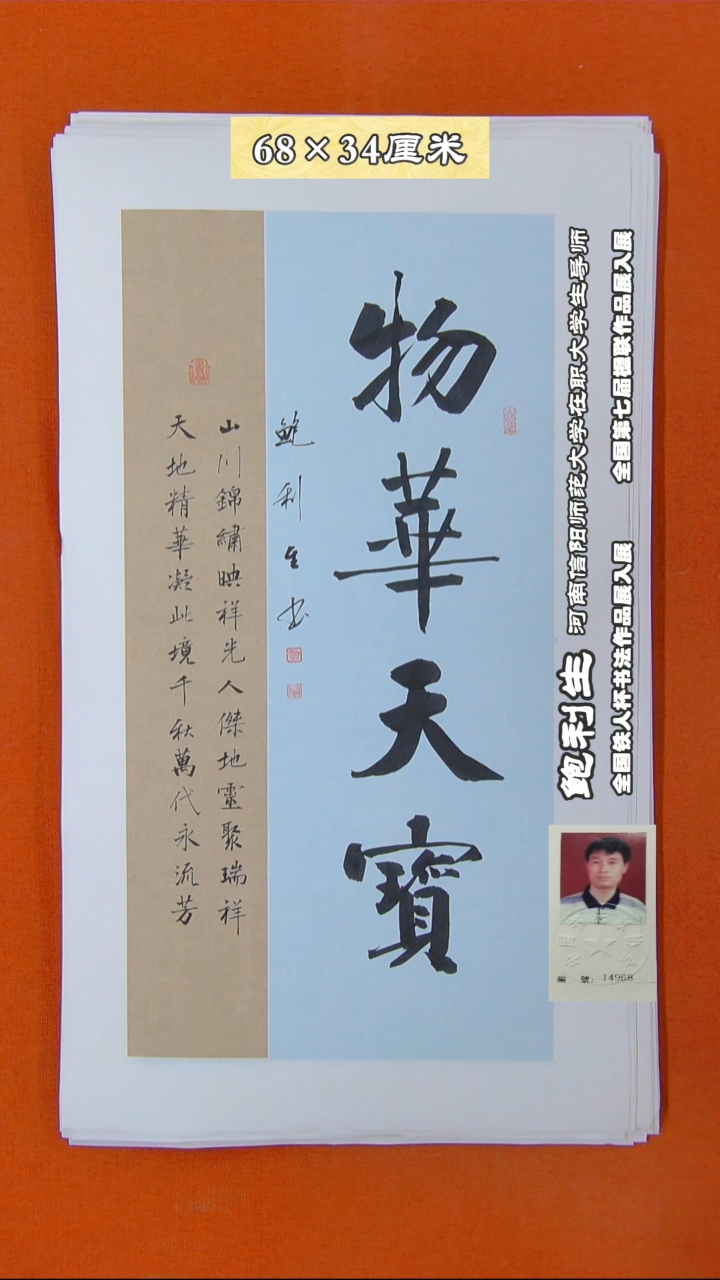 68×34厘米
物華天寶
鮑利生书
山川錦繡映祥光人傑地靈聚瑞祥
天地精華凝此境千秋萬代永流芳
鲍利生 河南信阳师范大学在职大学生导师
全国铁人杯书法作品展入展 全国第七届楹联作品展入展
編 號：14968